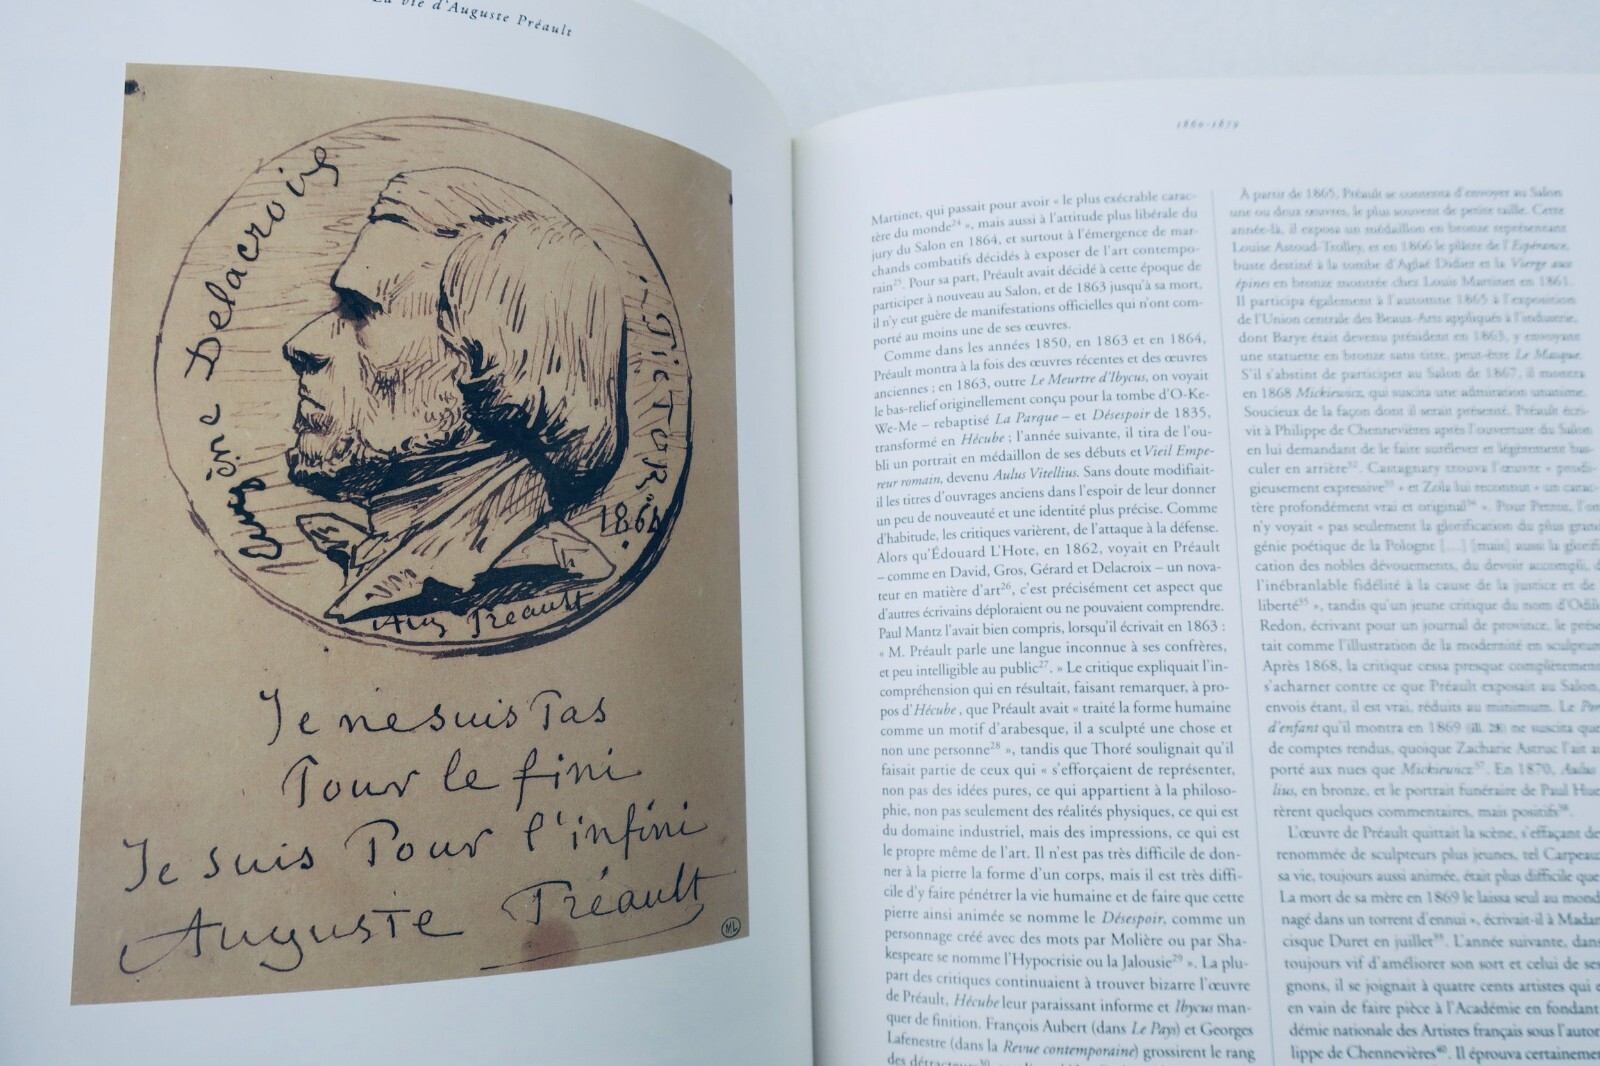 La vie d'Auguste Préault
Eugène Delacroix
PicTor.
1864
Aug Préault
Je ne suis Pas
Pour le fini
Je suis Pour l'infini
Auguste Préault
ML
1860-1879
Martinet, qui passait pour avoir « le plus exécrable carac-
tère du monde²⁴ », mais aussi à l'attitude plus libérale du
jury du Salon en 1864, et surtout à l'émergence de mar-
chands combatifs décidés à exposer de l'art contempo-
rain²⁵. Pour sa part, Préault avait décidé à cette époque de
participer à nouveau au Salon, et de 1863 jusqu'à sa mort,
il n'y eut guère de manifestations officielles qui n'ont com-
porté au moins une de ses œuvres.
Comme dans les années 1850, en 1863 et en 1864,
Préault montra à la fois des œuvres récentes et des œuvres
anciennes ; en 1863, outre Le Meurtre d'Ibycus, on voyait
le bas-relief originellement conçu pour la tombe d'O-Ke-
We-Me – rebaptisé La Parque – et Désespoir de 1835,
transformé en Hécube ; l'année suivante, il tira de l'ou-
bli un portrait en médaillon de ses débuts et Vieil Empe-
reur romain, devenu Aulus Vitellius. Sans doute modifiait-
il les titres d'ouvrages anciens dans l'espoir de leur donner
un peu de nouveauté et une identité plus précise. Comme
d'habitude, les critiques varièrent, de l'attaque à la défense.
Alors qu'Édouard L'Hote, en 1862, voyait en Préault
– comme en David, Gros, Gérard et Delacroix – un nova-
teur en matière d'art²⁶, c'est précisément cet aspect que
d'autres écrivains déploraient ou ne pouvaient comprendre.
Paul Mantz l'avait bien compris, lorsqu'il écrivait en 1863 :
« M. Préault parle une langue inconnue à ses confrères,
et peu intelligible au public²⁷. » Le critique expliquait l'in-
compréhension qui en résultait, faisant remarquer, à pro-
pos d'Hécube, que Préault avait « traité la forme humaine
comme un motif d'arabesque, il a sculpté une chose et
non une personne²⁸ », tandis que Thoré soulignait qu'il
faisait partie de ceux qui « s'efforçaient de représenter,
non pas des idées pures, ce qui appartient à la philoso-
phie, non pas seulement des réalités physiques, ce qui est
du domaine industriel, mais des impressions, ce qui est
le propre même de l'art. Il n'est pas très difficile de don-
ner à la pierre la forme d'un corps, mais il est très diffi-
cile d'y faire pénétrer la vie humaine et de faire que cette
pierre ainsi animée se nomme le Désespoir, comme un
personnage créé avec des mots par Molière ou par Sha-
kespeare se nomme l'Hypocrisie ou la Jalousie²⁹ ». La plu-
part des critiques continuaient à trouver bizarre l'œuvre
de Préault, Hécube leur paraissant informe et Ibycus man-
quer de finition. François Aubert (dans Le Pays) et Georges
Lafenestre (dans la Revue contemporaine) grossirent le rang
des détracteurs³⁰
À partir de 1865, Préault se contenta d'envoyer au Salon
une ou deux œuvres, le plus souvent de petite taille. Cette
année-là, il exposa un médaillon en bronze représentant
Louise Astoud-Trolley, et en 1866 le plâtre de l'Espérance,
buste destiné à la tombe d'Aglaé Didier et la Vierge aux
épines en bronze montrée chez Louis Martinet en 1861.
Il participa également à l'automne 1865 à l'exposition
de l'Union centrale des Beaux-Arts appliqués à l'industrie,
dont Barye était devenu président en 1863, y envoyant
une statuette en bronze sans titre, peut-être Le Masque.
S'il s'abstint de participer au Salon de 1867, il montra
en 1868 Mickiewicz, qui suscita une admiration unanime.
Soucieux de la façon dont il serait présenté, Préault écri-
vit à Philippe de Chennevières après l'ouverture du Salon
en lui demandant de le faire surélever et légèrement bas-
culer en arrière³². Castagnary trouva l'œuvre « prodi-
gieusement expressive³³ » et Zola lui reconnut « un carac-
tère profondément vrai et original³⁴ ». Pour
n'y voyait « pas seulement la glorification du plus grand
génie poétique de la Pologne [...] [mais] aussi la glorifi
cation des nobles dévouements, du devoir accompli, d
l'inébranlable fidélité à la cause de la justice et de
liberté³⁵ », tandis qu'un jeune critique du nom d'Odil
Redon, écrivant pour un journal de province, le prése
tait comme l'illustration de la modernité en sculptur
Après 1868, la critique cessa presque complètement
s'acharner contre ce que Préault exposait au Salon,
envois étant, il est vrai, réduits au minimum. Le
d'enfant qu'il montra en 1869 (ill. 28) ne suscita que
de comptes rendus, quoique Zacharie Astruc l'ait au
porté aux nues que Mickiewicz³⁷. En 1870, Aulus
lius, en bronze, et le portrait funéraire de Paul Hue
rèrent quelques commentaires, mais positifs³⁸.
L'œuvre de Préault quittait la scène, s'effaçant de
renommée de sculpteurs plus jeunes, tel Carpeau
sa vie, toujours aussi animée, était plus difficile que
La mort de sa mère en 1869 le laissa seul au mond
nagé dans un torrent d'ennui », écrivait-il à Madar
cisque Duret en juillet³⁹. L'année suivante, dans
toujours vif d'améliorer son sort et celui de ses
gnons, il se joignait à quatre cents artistes qui e
en vain de faire pièce à l'Académie en fondant
démie nationale des Artistes français sous l'autor
lippe de Chennevières⁴⁰. Il éprouva certainement